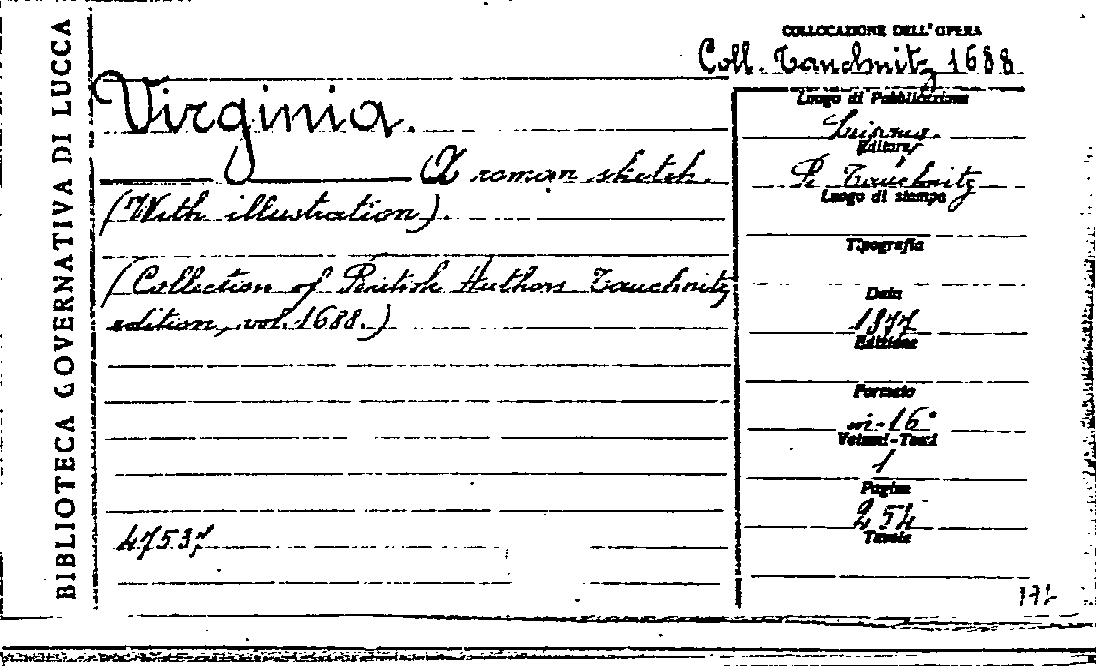 BIBLIOTECA GOVERNATIVA DI LUCCA
COLLOCAZIONE DELL'OPERA
Coll. Tauchnitz 1688
Virginia.
A roman sketch.
(With illustration).
(Collection of British Authors Tauchnitz
edition, vol. 1688.)
47537
Luogo di Pubblicazione
Editore
Tauchnitz
Luogo di stampa
Tipografia
Data
1877
Edizione
Formato
in-16°
Volumi-Tomi
1
Pagine
254
Tavole